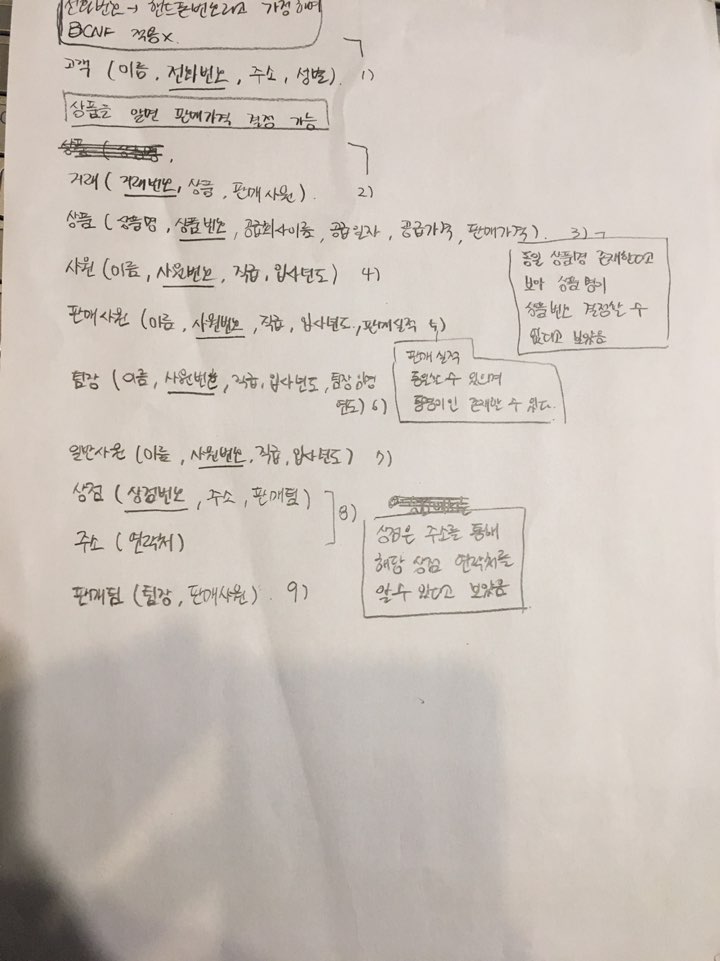 전화번호 → 핸드폰번호라고 가정하며
BCNF 적용x.
고객 (이름, 전화번호, 주소, 성별). 1)
상품을 알면 판매가격 결정 가능
거래 (거래번호, 상품, 판매사원). 2)
상품 (상품명, 상품번호, 공급회사이름, 공급일자, 공급가격, 판매가격). 3)
동일 상품명 존재한다고
보아 상품명이
상품번호 결정할 수
없다고 보았음
사원 (이름, 사원번호, 직급, 입사년도) 4)
판매사원 (이름, 사원번호, 직급, 입사년도, 판매실적 5)
판매실적
동일할 수 있으며
동명이인 존재할 수 있다.
팀장 (이름, 사원번호, 직급, 입사년도, 팀장
연도) 6)
일반사원 (이름, 사원번호, 직급, 입사년도) 7)
상점 (상점번호, 주소, 판매팀)
주소 (연락처)
8)
상점은 주소를 통해
해당 상점 연락처를
알 수 있다고 보았음
판매팀 (팀장, 판매사원). 9)